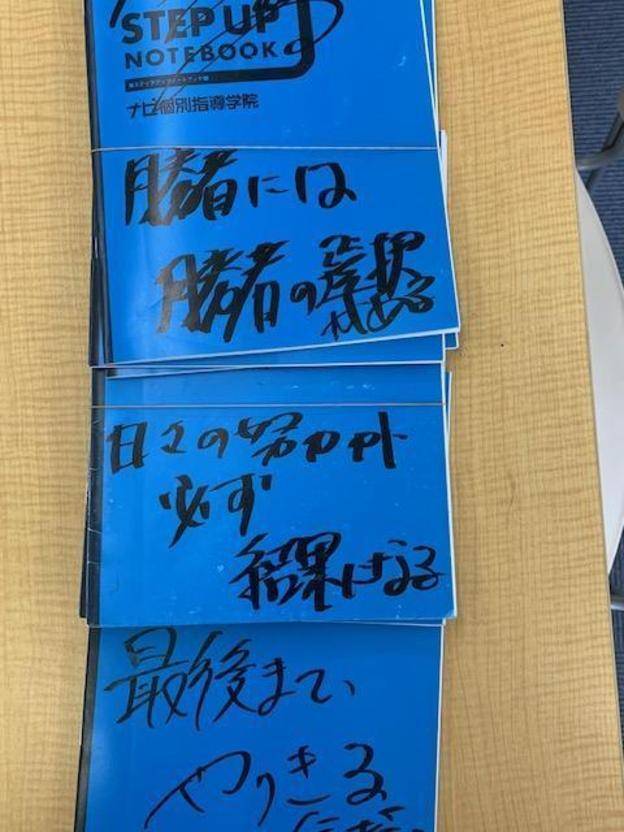 STEP UP
NOTEBOOK
ナビ個別指導学院
勝者には
勝者の
日々の努力が
必ず
結果になる
最後まで
やりきる